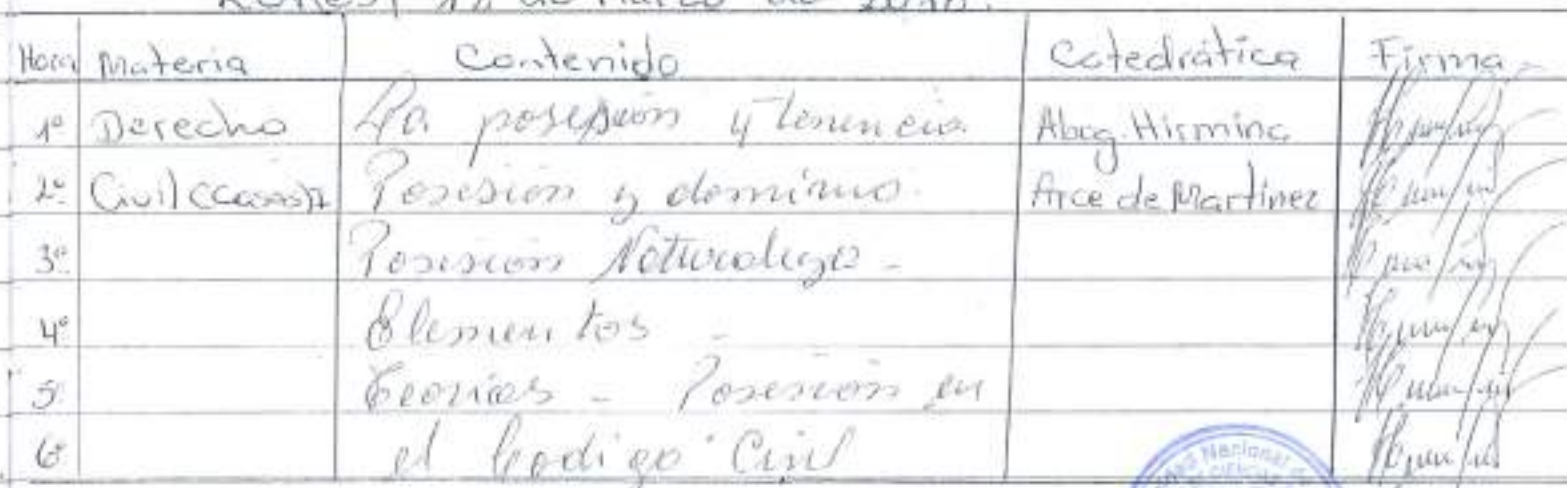 Lunes, 12 de Marzo de 2018.
Hora Materia Contenido Catedrática Firma
1º Derecho La posesión y tenencia. Abog. Hirmina
2º Civil (Cosas) Posesión y dominio. Arce de Martínez
3º Posisión Naturaleza -
4º Elementos -
5º Teorías - Posesión en
6º el Codigo Civil
Nacional